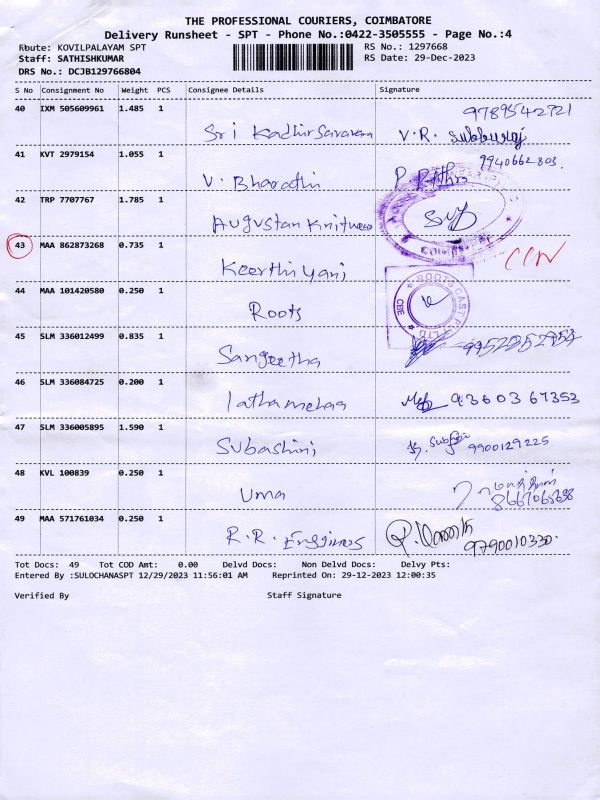 THE PROFESSIONAL COURIERS, COIMBATORE
Delivery Runsheet - SPT - Phone No.:0422-3505555 - Page No.:4
Route: KOVILPALAYAM SPT RS No.: 1297668
Staff: SATHISHKUMAR RS Date: 29-Dec-2023
DRS No.: DCJB129766804
S No Consignment No Weight PCS Consignee Details Signature
40 IXM 505609961 1.485 1 Sri Kadhirsaravanan V.R. Subburaj 9789542721
41 KVT 2979154 1.055 1 V. Bharathi P. 9940662803
42 TRP 7707767 1.785 1 Augustan
43 MAA 862873268 0.735 1 Keerthiyani
44 MAA 101420580 0.250 1 Roots ROOTS CAST P LTD CBE
45 SLM 336012499 0.835 1 Sangeetha
46 SLM 336084725 0.200 1 9360367353
47 SLM 336005895 1.590 1 Subashini 9900129225
48 KVL 100839 0.250 1 Uma
49 MAA 571761034 0.250 1 R.R. Engines 9790010330
Tot Docs: 49 Tot COD Amt: 0.00 Delvd Docs: Non Delvd Docs: Delvy Pts:
Entered By :SULOCHANASPT 12/29/2023 11:56:01 AM Reprinted On: 29-12-2023 12:00:35
Verified By Staff Signature